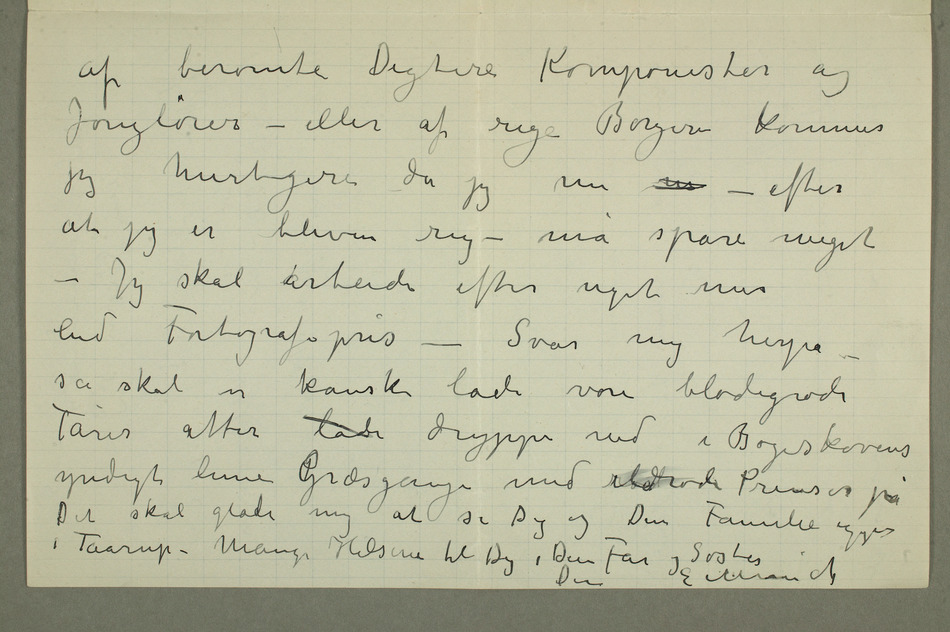 af berømte Digtere Komponister og
Jonglörer – eller af rige Borgere kommer
jeg hurtigere da jeg nu – efter
at jeg er bleven rig – må spare meget
– Jeg skal arbeide efter noget mer
end Fortografipris — Svar mig herpa –
sa skal vi kanske lade vore blodigrøde
Tårer atter lade dryppe ned i Bøgeskovens
yndigt lune Græsgange med Prinser på
Det skal glæde mig at se Dig og Din Familie igjen
i Taarup – Mange Hilsene til Dig, Din Far og Søster
Din E Munch